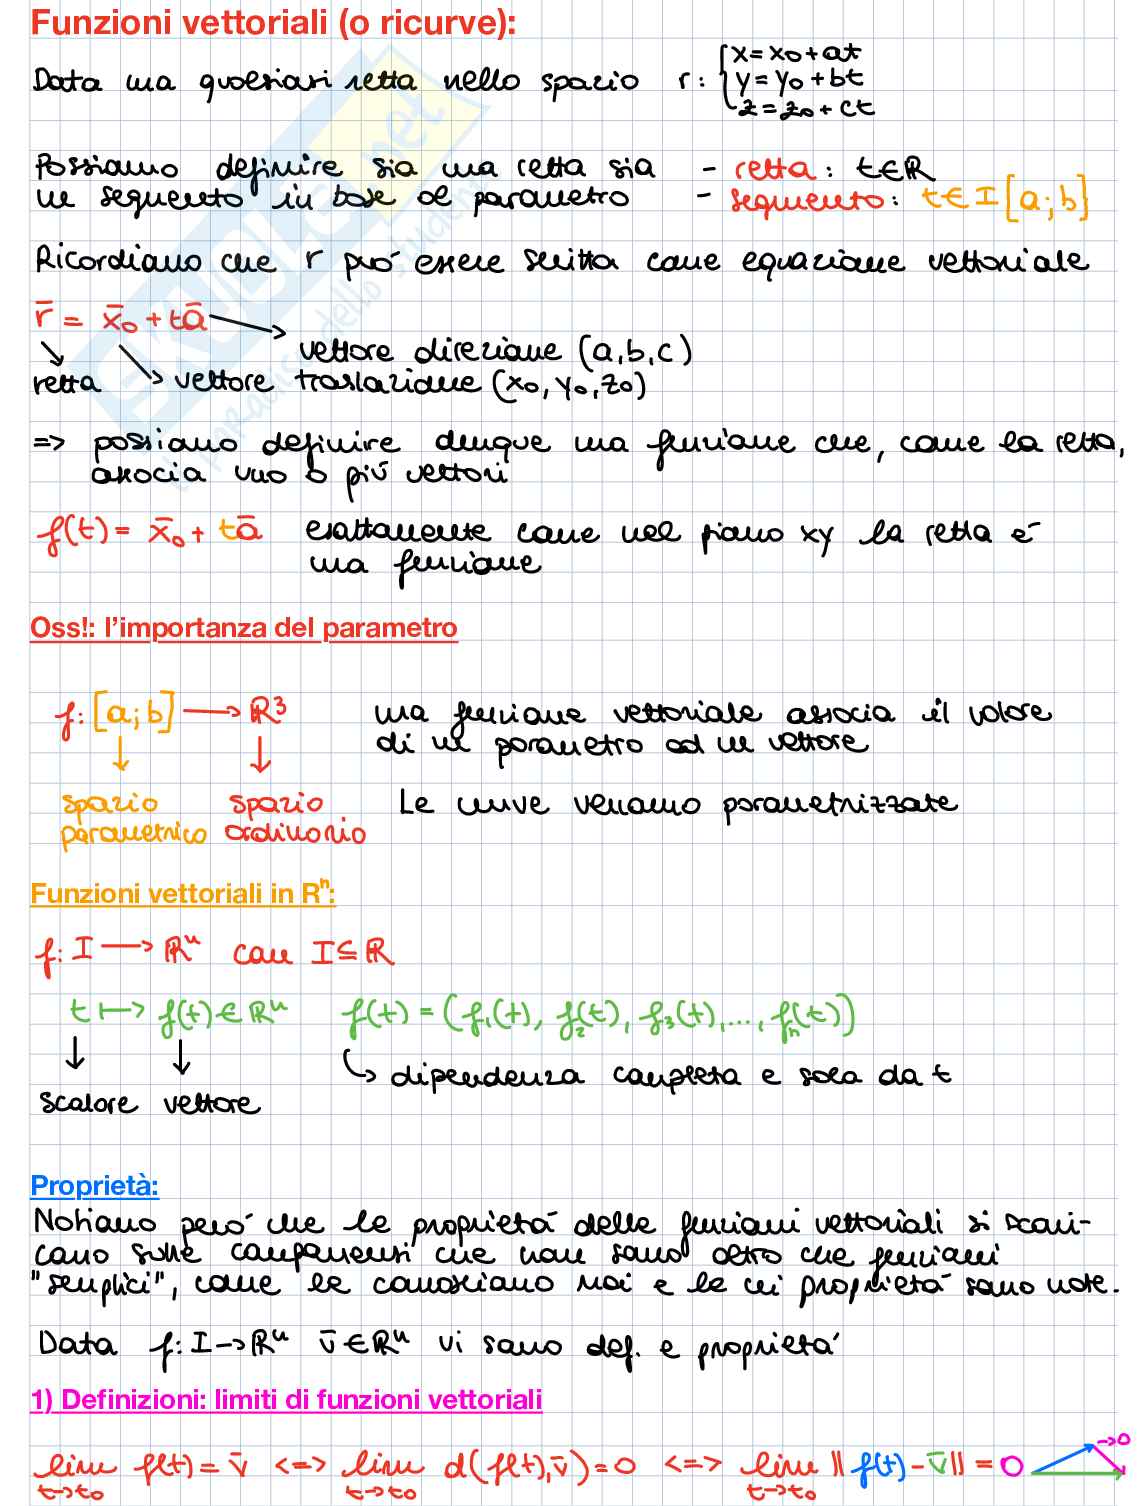 Funzioni vettoriali (o ricurve):
Data una qualsiasi retta nello spazio r: { x = x₀ + at
y = y₀ + bt
z = z₀ + ct
Possiamo definire sia una retta sia - retta: t∈ℝ
un segmento in base al parametro - segmento: t∈I[a;b]
Ricordiamo che r può essere scritta come equazione vettoriale
r̄ = x̄₀ + tā
vettore direzione (a,b,c)
retta vettore traslazione (x₀, y₀, z₀)
=> possiamo definire dunque una funzione che, come la retta,
associa uno o più vettori
f(t) = x̄₀ + tā esattamente come nel piano xy la retta è
una funzione
Oss!: l'importanza del parametro
f: [a;b] → ℝ³ una funzione vettoriale associa il valore
di un parametro ad un vettore
↓ ↓
spazio spazio Le curve vengono parametrizzate
parametrico ordinario
Funzioni vettoriali in Rⁿ:
f: I → ℝⁿ con I ⊆ ℝ
t ↦ f(t) ∈ ℝⁿ f(t) = (f₁(t), f₂(t), f₃(t),..., fₙ(t))
↓ ↓ ↳ dipendenza completa e sola da t
scalare vettore
Proprietà:
Notiamo però che le proprietà delle funzioni vettoriali si scari-
cano sulle componenti che non sono altro che funzioni
"semplici", come le conosciamo noi e le cui proprietà sono note.
Data f: I → ℝⁿ v̄ ∈ ℝⁿ vi sono def. e proprietà
1) Definizioni: limiti di funzioni vettoriali
lim t→t₀ f(t) = v̄ <=> lim t→t₀ d(f(t), v̄) = 0 <=> lim t→t₀ ‖f(t) - v̄‖ = 0 →0